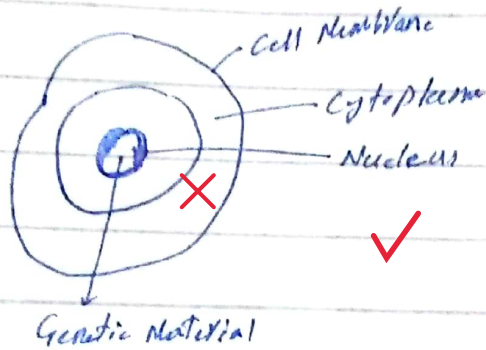 Cell Membrane
Cytoplasm
Nucleus
Genetic Material